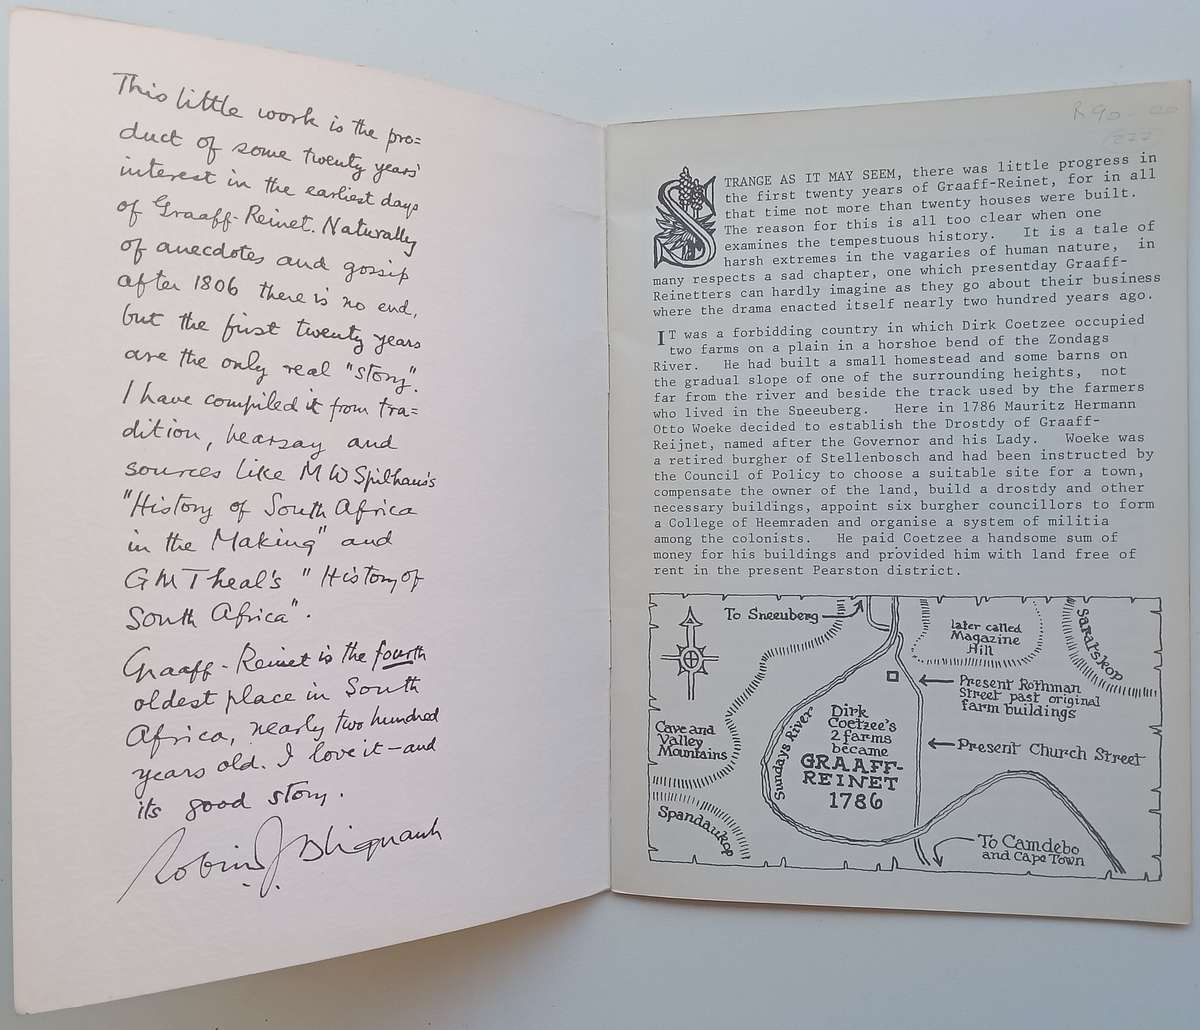 This little work is the pro=
duct of some twenty years'
interest in the earliest days
of Graaff-Reinet. Naturally
of anecdotes and gossip
after 1806 there is no end,
but the first twenty years
are the only real "story".
I have compiled it from tra=
dition, hearsay and
sources like M W Spilhaus's
"History of South Africa
in the Making" and
G M Theal's "History of
South Africa".
Graaff-Reinet is the fourth
oldest place in South
Africa, nearly two hundred
years old. I love it - and
its good story.
Robin J. Blignault
R 90-00
STRANGE AS IT MAY SEEM, there was little progress in
the first twenty years of Graaff-Reinet, for in all
that time not more than twenty houses were built.
The reason for this is all too clear when one
examines the tempestuous history. It is a tale of
harsh extremes in the vagaries of human nature, in
many respects a sad chapter, one which presentday Graaff-
Reinetters can hardly imagine as they go about their business
where the drama enacted itself nearly two hundred years ago.
IT was a forbidding country in which Dirk Coetzee occupied
two farms on a plain in a horshoe bend of the Zondags
River. He had built a small homestead and some barns on
the gradual slope of one of the surrounding heights, not
far from the river and beside the track used by the farmers
who lived in the Sneeuberg. Here in 1786 Mauritz Hermann
Otto Woeke decided to establish the Drostdy of Graaff-
Reijnet, named after the Governor and his Lady. Woeke was
a retired burgher of Stellenbosch and had been instructed by
the Council of Policy to choose a suitable site for a town,
compensate the owner of the land, build a drostdy and other
necessary buildings, appoint six burgher councillors to form
a College of Heemraden and organise a system of militia
among the colonists. He paid Coetzee a handsome sum of
money for his buildings and provided him with land free of
rent in the present Pearston district.
To Sneeuberg
later called
Magazine
Hill
Saratskop
Present Rothman
Street past original
farm buildings
Cave and
Valley
Mountains
Sundays River
Dirk
Coetzee's
2 farms
became
GRAAFF-
REINET
1786
Present Church Street
Spandaukop
To Camdebo
and Cape Town